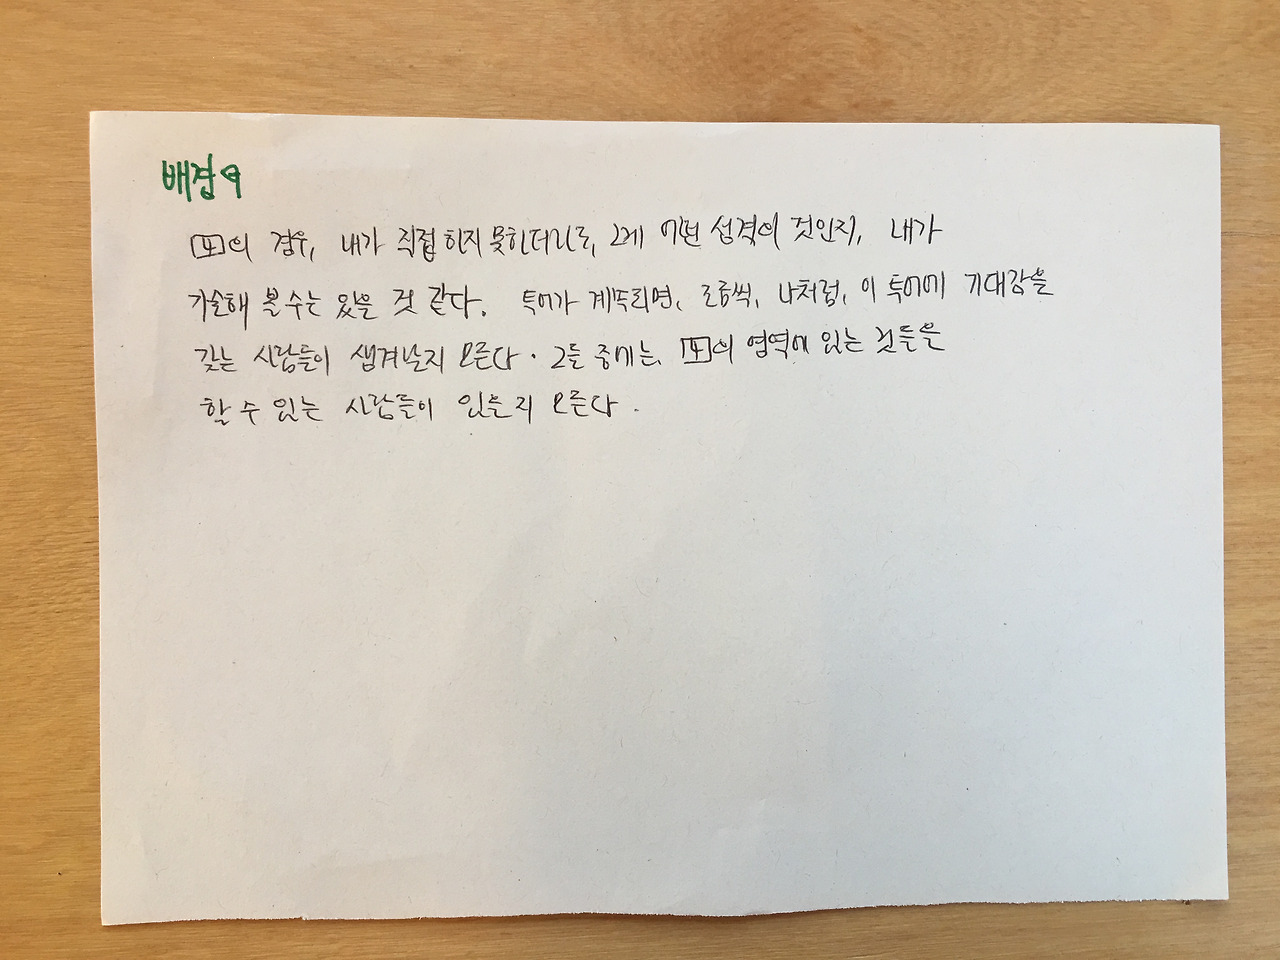 배경 9
의 경우, 내가 직접 하지 못하더라도, 그게 어떤 성격의 것인지, 내가
기술해 볼 수는 있을 것 같다. 투어가 계속되면, 조금씩, 나처럼, 이 투어에 기대감을
갖는 사람들이 생겨날지 모른다. 그들 중에는, 의 영역에 있는 것들을
할 수 있는 사람들이 있을지 모른다.